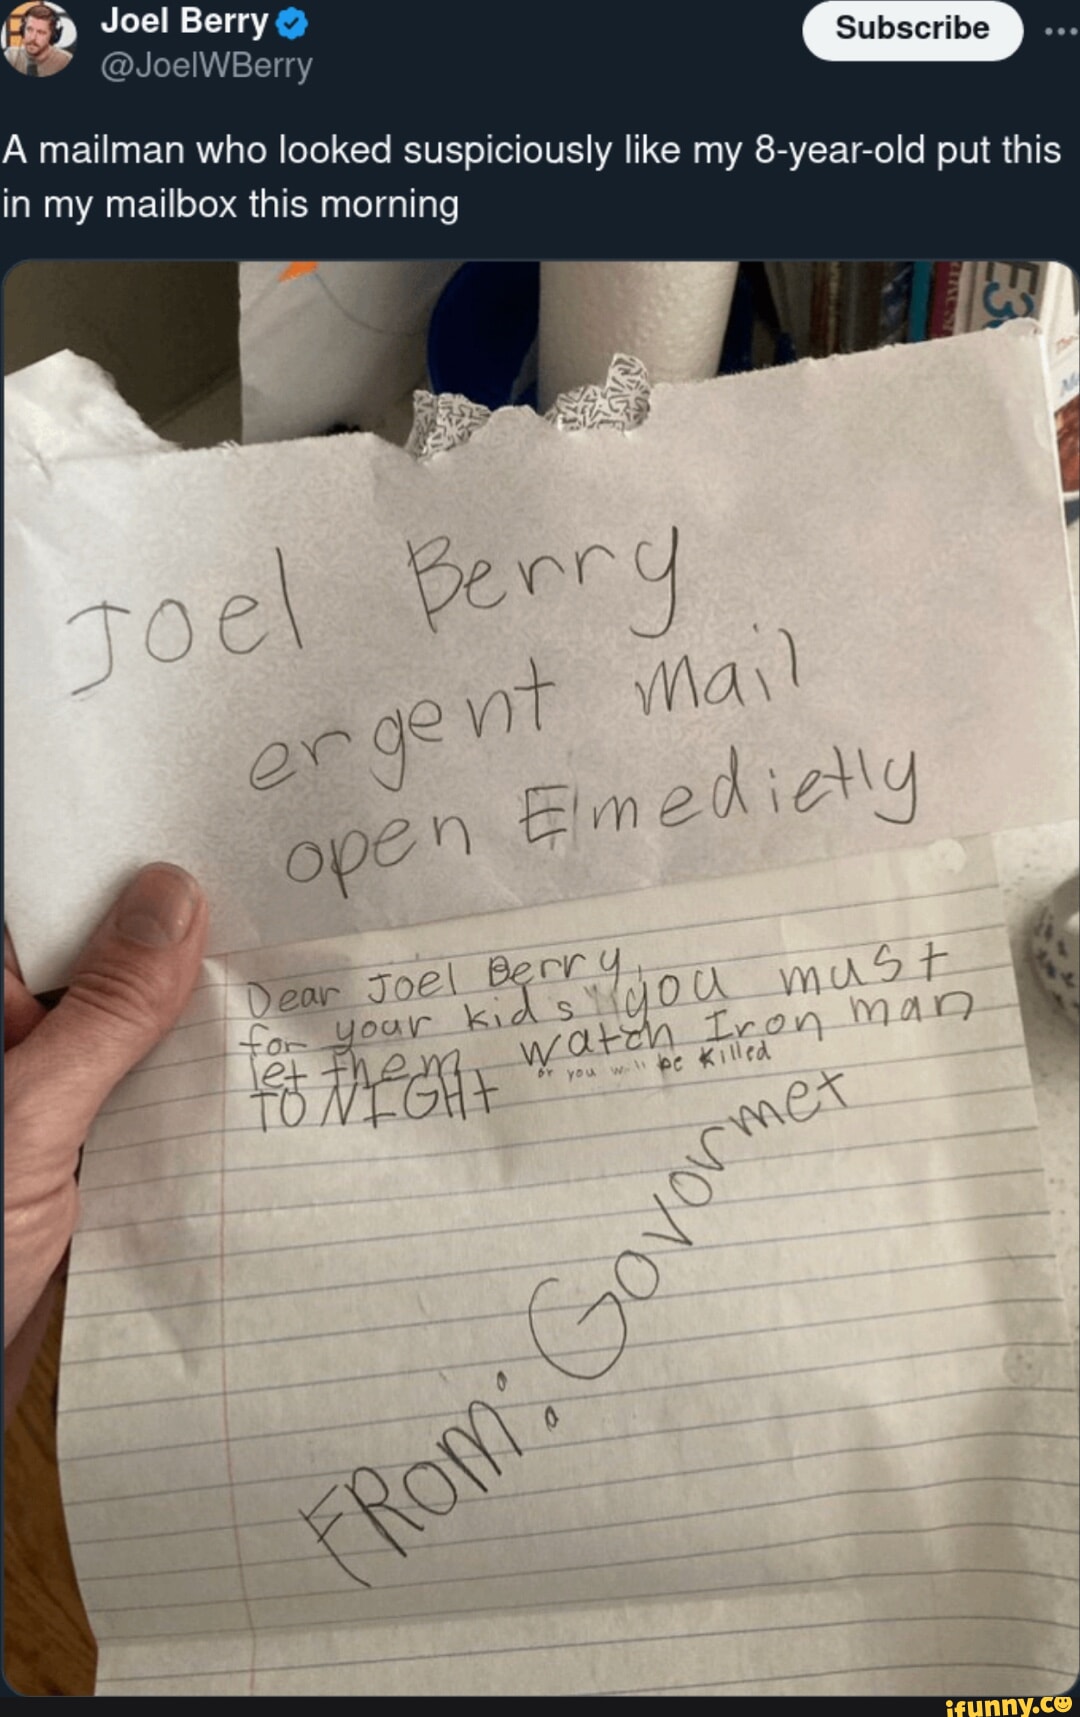 Joel Berry
@JoelWBerry
Subscribe
A mailman who looked suspiciously like my 8-year-old put this
in my mailbox this morning
Joel Berry
ergent mail
open Emedietly
Dear Joel Berry,
for your kids you must
let them watch Iron man
or you will be killed
TONIGHt
FROM: Govormet
ifunny.co